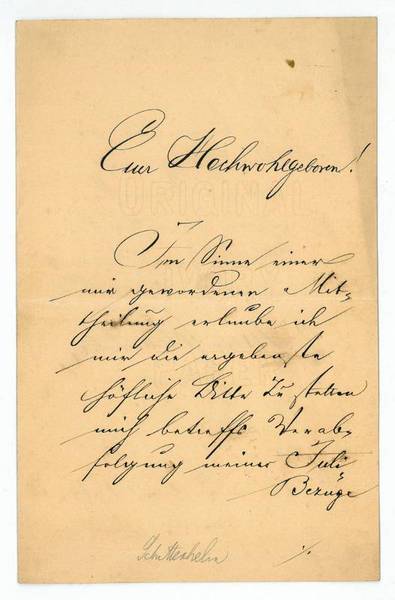 Euer Hochwohlgeboren!
Im Sinne einer
mir gewordenen Mit-
theilung erlaube ich
mir die ergebenste
höfliche Bitte zu stellen
mich betreffs Verab-
folgung meiner Juli
Bezüge
Schuttenhelm
./.
ORIGINAL